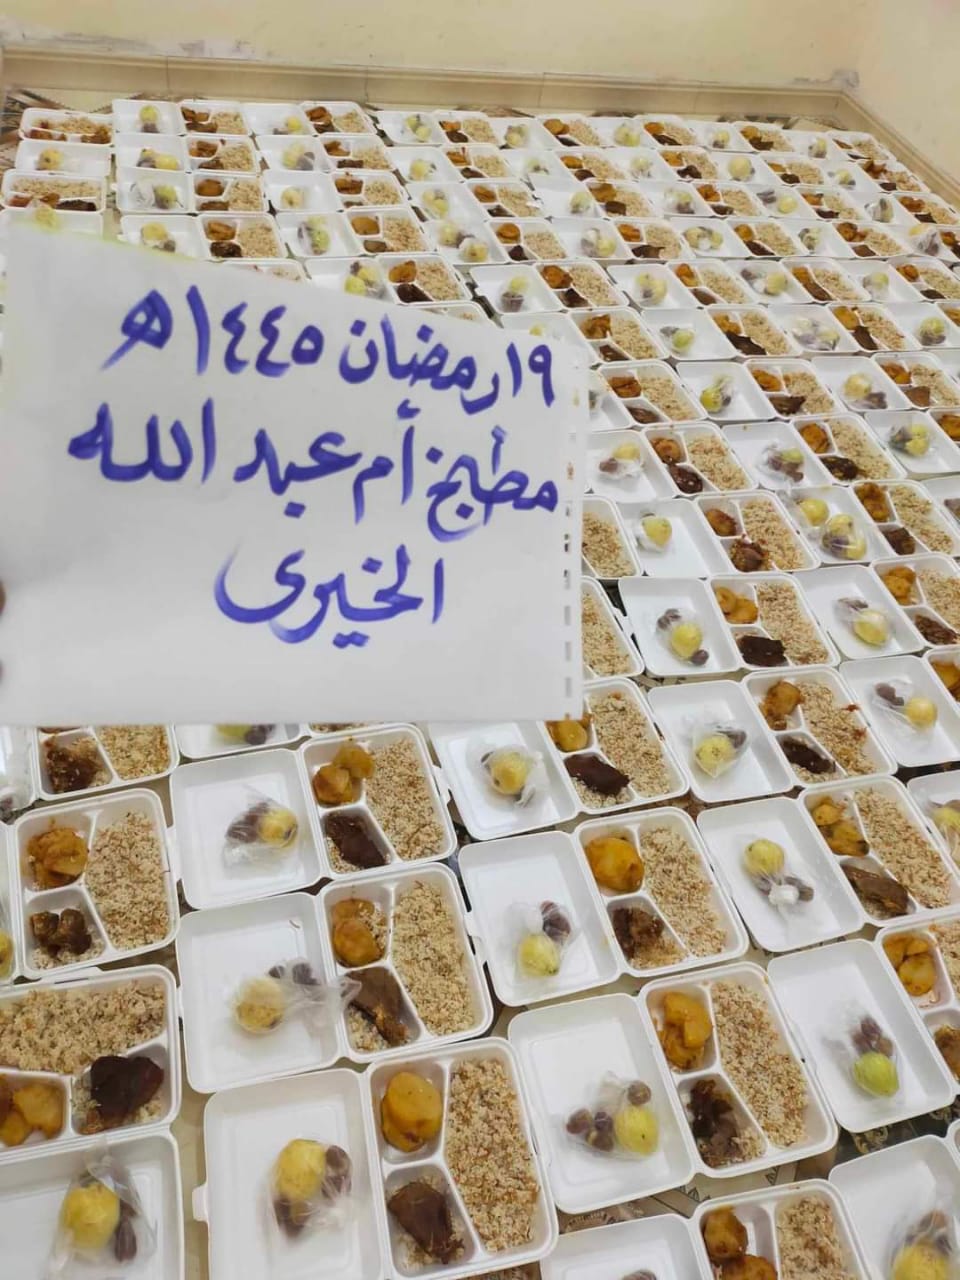 ١٩ رمضان ١٤٤٥ه
مطبخ أم عبد الله
الخيرى